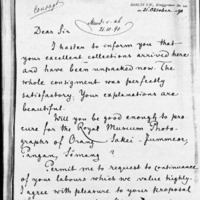 Concept
BERLIN S.W., Königgrätzer Str. 120
Dear Sir
21. October 90
I hasten to inform you that
your excellent collections arrived here
and have been unpacked now. The
whole consignment was perfectly
satisfactory. Your explanations are
beautiful.
Will you be good enough to pro
cure for the Royal Museum Photo-
graphs of Orang Sakei - Jummeor,
Pangan, Sĕmang
Permit me to request to continuance
of your labours which we value highly.
I agree with pleasure to your proposal